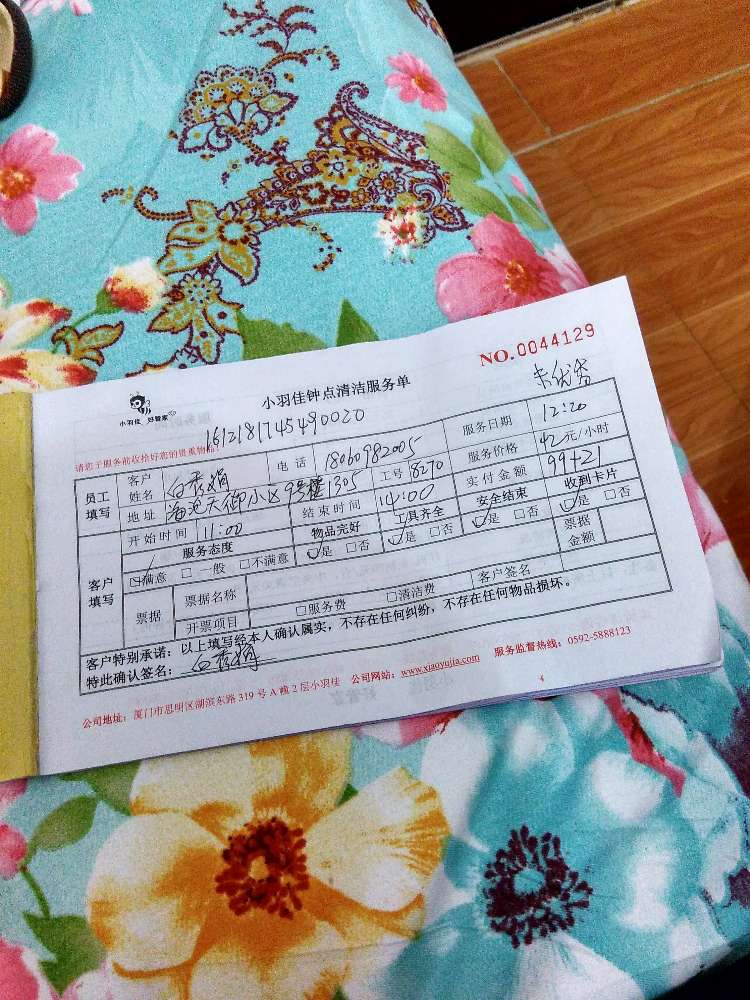 NO.0044129
小羽佳 好管家
小羽佳钟点清洁服务单
卡优秀
请您于服务前收拾好您的贵重物品！
161218174549 0020
员工填写 客户姓名 白秀娟 电话 18060982005 服务日期 12:20
地址 海沧天御小区9号楼1305 工号 8270 服务价格 42元/小时
开始时间 11:00 结束时间 14:00 实付金额 99+21
客户填写 服务态度 物品完好 工具齐全 安全结束 收到卡片
☑满意 □ 一般 □不满意 ☑是 □否 ☑是 □否 ☑是 □否 ☑是 □否
票据 票据名称 票据金额
开票项目 □服务费 □清洁费 客户签名
客户特别承诺：以上填写经本人确认属实，不存在任何纠纷，不存在任何物品损坏。
特此确认签名： 白秀娟
公司地址：厦门市思明区湖滨东路 319 号 A 幢 2 层小羽佳 公司网站：www.xiaoyujia.com 服务监督热线：0592-5888123